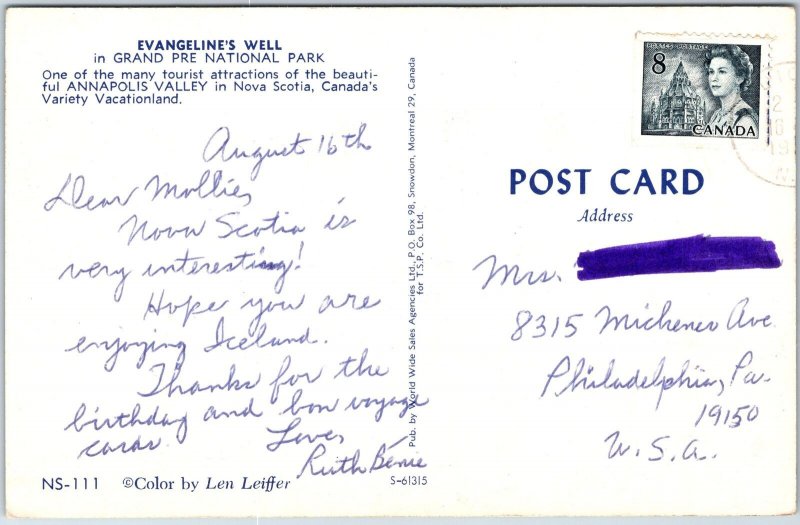 EVANGELINE'S WELL
in GRAND PRE NATIONAL PARK
One of the many tourist attractions of the beauti-
ful ANNAPOLIS VALLEY in Nova Scotia, Canada's
Variety Vacationland.
August 16th
Dear Mollie,
Nova Scotia is
very interesting!
Hope you are
enjoying Iceland.
Thanks for the
birthday and bon voyage
cards.
Love,
Ruth
NS-111 ©Color by Len Leiffer
S-61315
Pub. by World Wide Sales Agencies Ltd., P.O. Box 98, Snowdon, Montreal 29, Canada
for T.S.P. Co. Ltd.
POSTES-POSTAGE
8
CANADA
POST CARD
Address
Mrs.
8315 Michener Ave
Philadelphia, Pa.
19150
U.S.A.